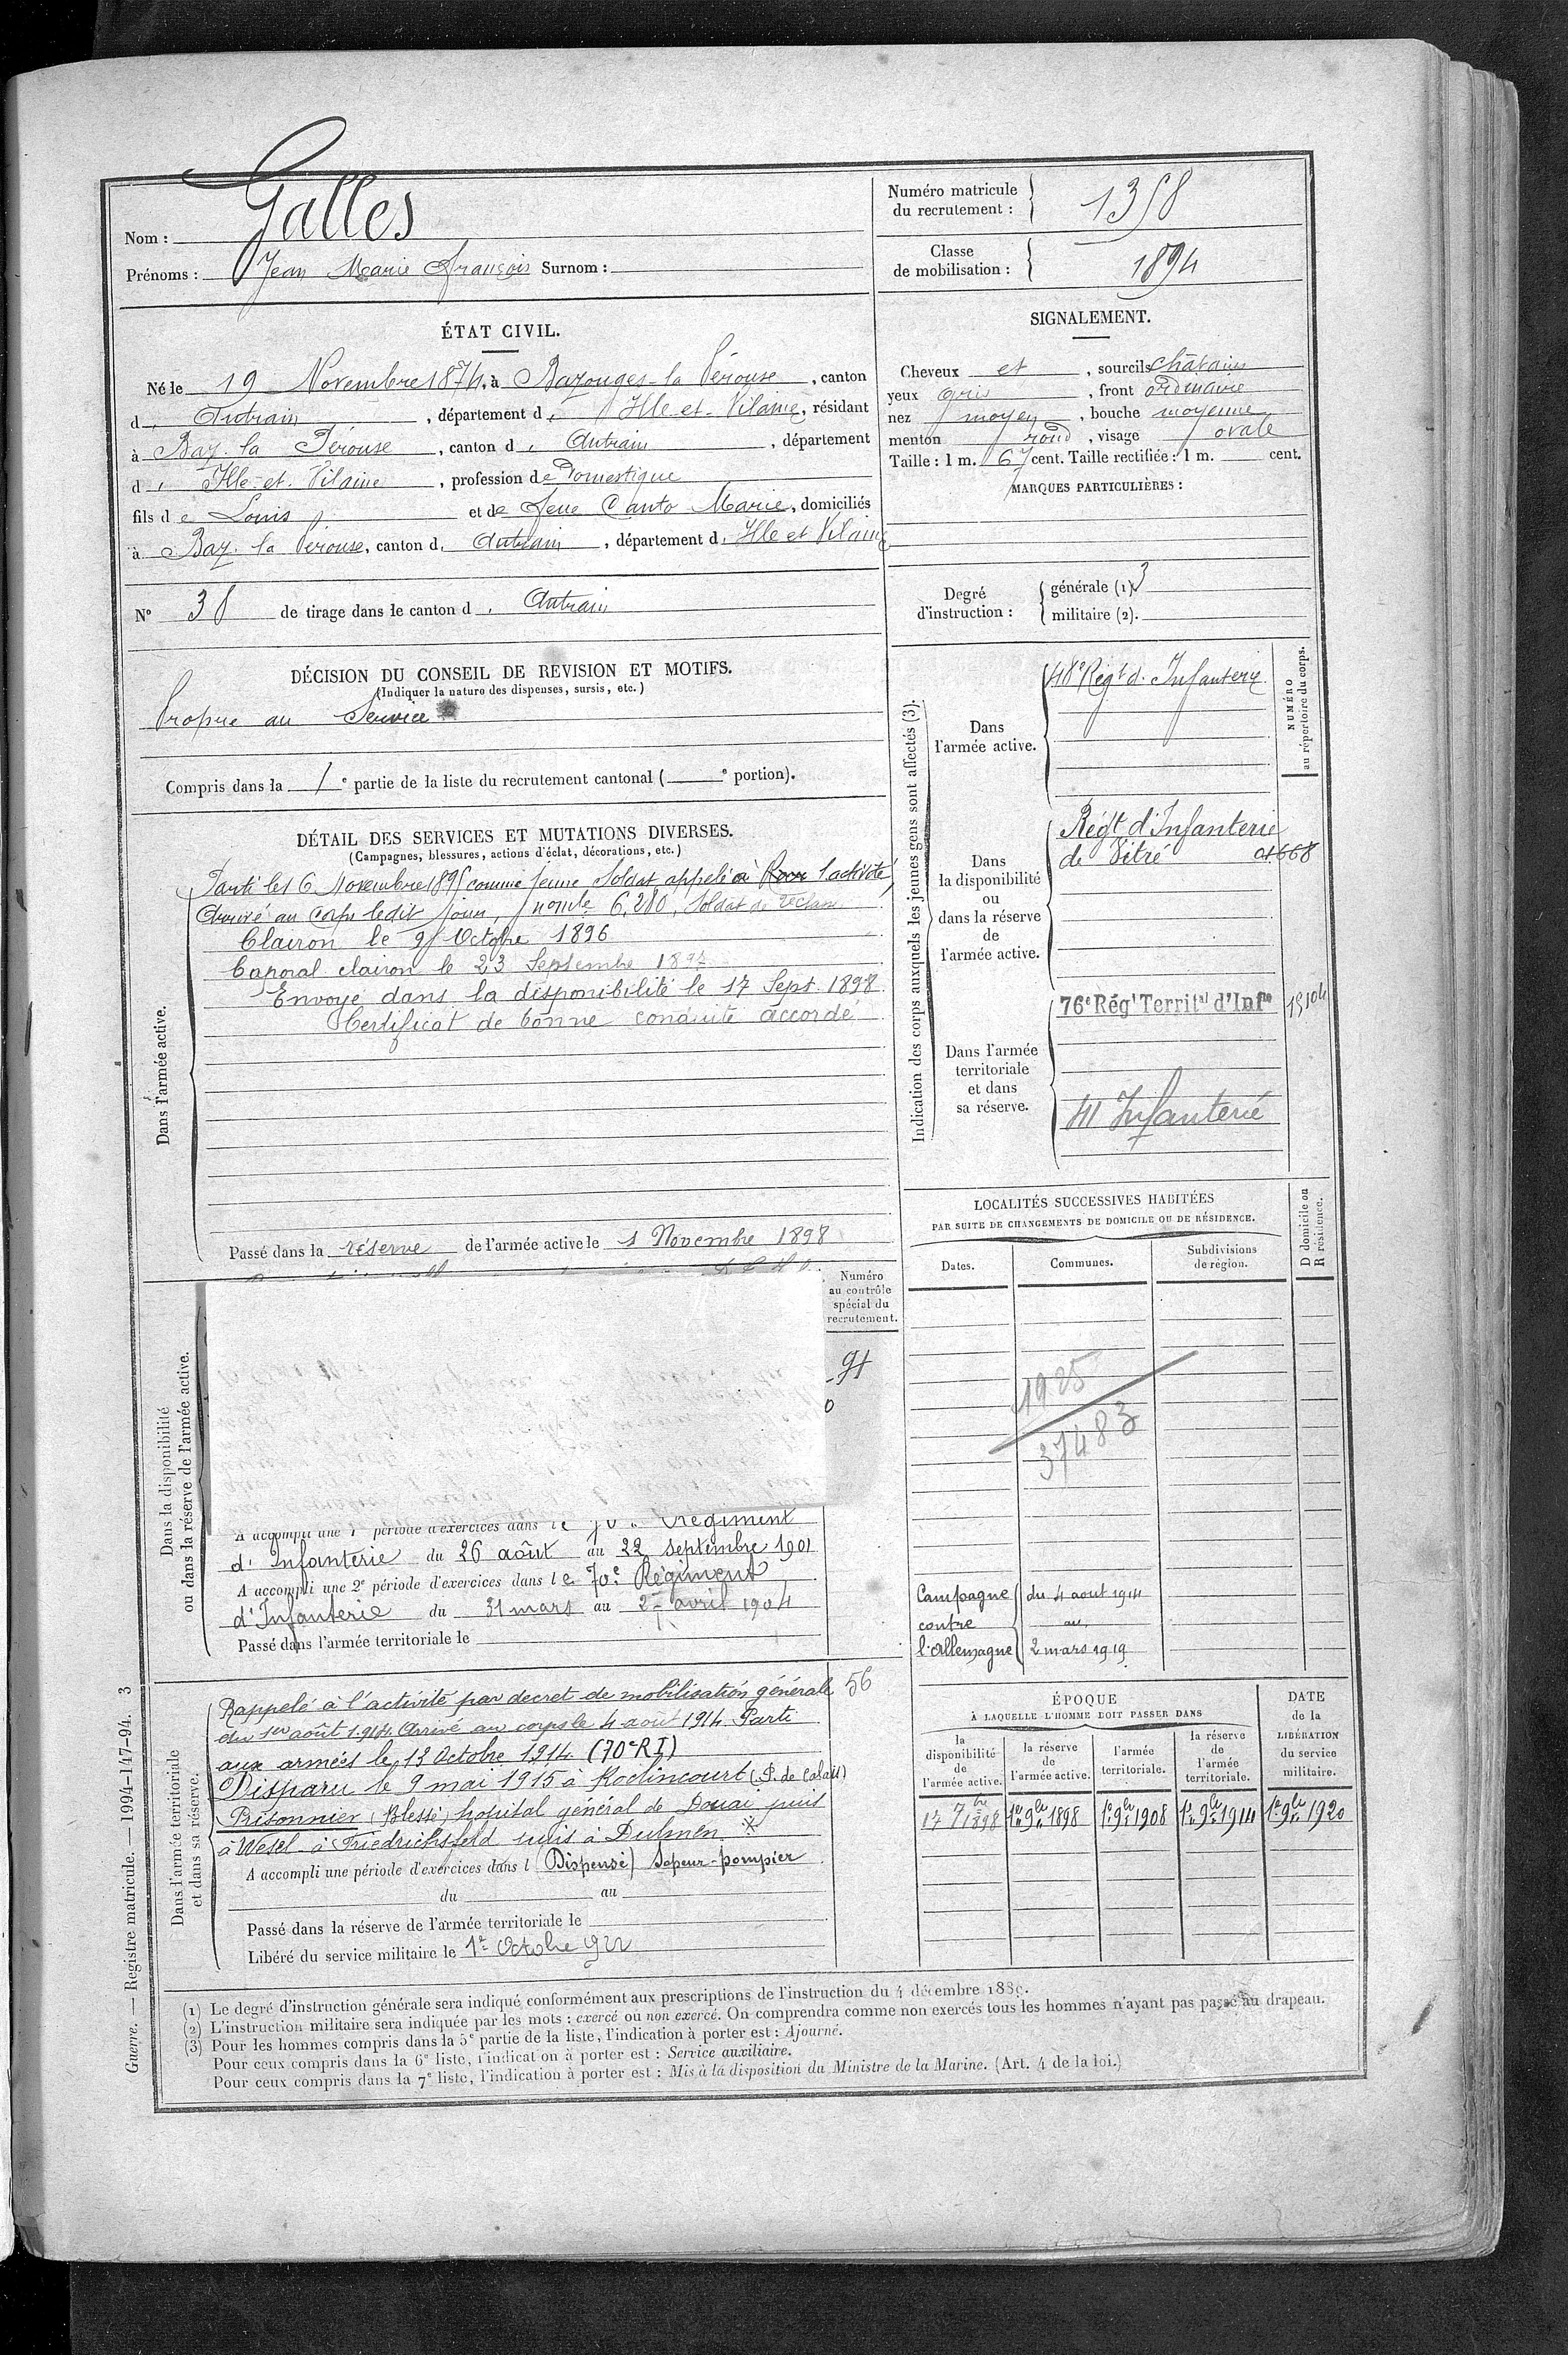 Nom : Galles
Prénoms : Jean Marie François Surnom :
Numéro matricule
du recrutement : 1358
Classe
de mobilisation : 1894
ÉTAT CIVIL.
Né le 19 Novembre 1874, à Bazouges-la Pérouse, canton
d Antrain, département d Ille-et-Vilaine, résidant
à Baz. la Pérouse, canton d Antrain, département
d Ille-et-Vilaine, profession de Domestique
fils de Louis et de feue Canto Marie, domiciliés
à Baz. la Pérouse, canton d. Antrain, département d. Ille et Vilaine
N° 38 de tirage dans le canton d Antrain
SIGNALEMENT.
Cheveux et, sourcils châtains
yeux gris, front ordinaire
nez moyen, bouche moyenne
menton rond, visage ovale
Taille : 1 m. 67 cent. Taille rectifiée : 1 m. cent.
MARQUES PARTICULIÈRES :
Degré
d'instruction :
générale (1). 3
militaire (2).
DÉCISION DU CONSEIL DE REVISION ET MOTIFS.
(Indiquer la nature des dispenses, sursis, etc.)
Propre au Service
Compris dans la 1e partie de la liste du recrutement cantonal ( e portion).
DÉTAIL DES SERVICES ET MUTATIONS DIVERSES.
(Campagnes, blessures, actions d'éclat, décorations, etc.)
Dans l'armée active.
Parti le 16 Novembre 1895 comme jeune Soldat appelé à l'activité
Arrivé au Corps ledit jour, no mle 6,280, Soldat de 2e classe
Clairon le Octobre 1896
Caporal clairon le 23 Septembre 1897
Envoyé dans la disponibilité le 17 Sept. 1898
Certificat de bonne conduite accordé
Passé dans la réserve de l'armée active le 1 Novembre 1898
Indication des corps auxquels les jeunes gens sont affectés (3).
NUMÉRO
au répertoire du corps.
Dans
l'armée active.
48e Régt d. Infanterie
Dans
la disponibilité
ou
dans la réserve
de
l'armée active.
Régt d'Infanterie
de Vitré 01668
Dans l'armée
territoriale
et dans
sa réserve.
76e Régt Territal d'Infie 15104
41 Infanterie
Dans la disponibilité
ou dans la réserve de l'armée active.
Numéro
au contrôle
spécial du
recrutement.
A accompli une 1e période d'exercices dans le 70e Régiment
d'Infanterie du 26 août au 22 septembre 1901
A accompli une 2e période d'exercices dans le 70e Régiment
d'Infanterie du 31 mars au 27 avril 1904
Passé dans l'armée territoriale le
LOCALITÉS SUCCESSIVES HABITÉES
PAR SUITE DE CHANGEMENTS DE DOMICILE OU DE RÉSIDENCE.
Dates. Communes. Subdivisions
de région.
D domicile ou
R résidence.
1925
37483
Campagne du 4 aout 1914
contre au
l'Allemagne 2 mars 1919
Dans l'armée territoriale
et dans sa réserve.
Rappelé à l'activité par decret de mobilisation générale 56
du 1er août 1914 Arrivé au corps le 4 aout 1914 Parti
aux armées le 13 Octobre 1914 (70e RI)
Disparu le 9 mai 1915 à Roclincourt (P. de Calais)
Prisonnier (Blessé) hopital général de Douai puis
à Wesel à Friedrichsfeld puis à Dulmen
A accompli une période d'exercices dans l (Dispensé) Sapeur-pompier
du au
Passé dans la réserve de l'armée territoriale le
Libéré du service militaire le 1er Octobre 922
ÉPOQUE
À LAQUELLE L'HOMME DOIT PASSER DANS
la
disponibilité
de
l'armée active.
la réserve
de
l'armée active.
l'armée
territoriale.
la réserve
de
l'armée
territoriale.
DATE
de la
LIBÉRATION
du service
militaire.
17 7bre 1898 1er 9bre 1898 1er 9bre 1908 1er 9bre 1914 1er 9bre 1920
(1) Le degré d'instruction générale sera indiqué conformément aux prescriptions de l'instruction du 4 décembre 1889.
(2) L'instruction militaire sera indiquée par les mots : exercé ou non exercé. On comprendra comme non exercés tous les hommes n'ayant pas passé au drapeau.
(3) Pour les hommes compris dans la 5e partie de la liste, l'indication à porter est : Ajourné.
Pour ceux compris dans la 6e liste, l'indication à porter est : Service auxiliaire.
Pour ceux compris dans la 7e liste, l'indication à porter est : Mis à la disposition du Ministre de la Marine. (Art. 4 de la loi.)
Guerre. — Registre matricule. — 1994-147-94. 3